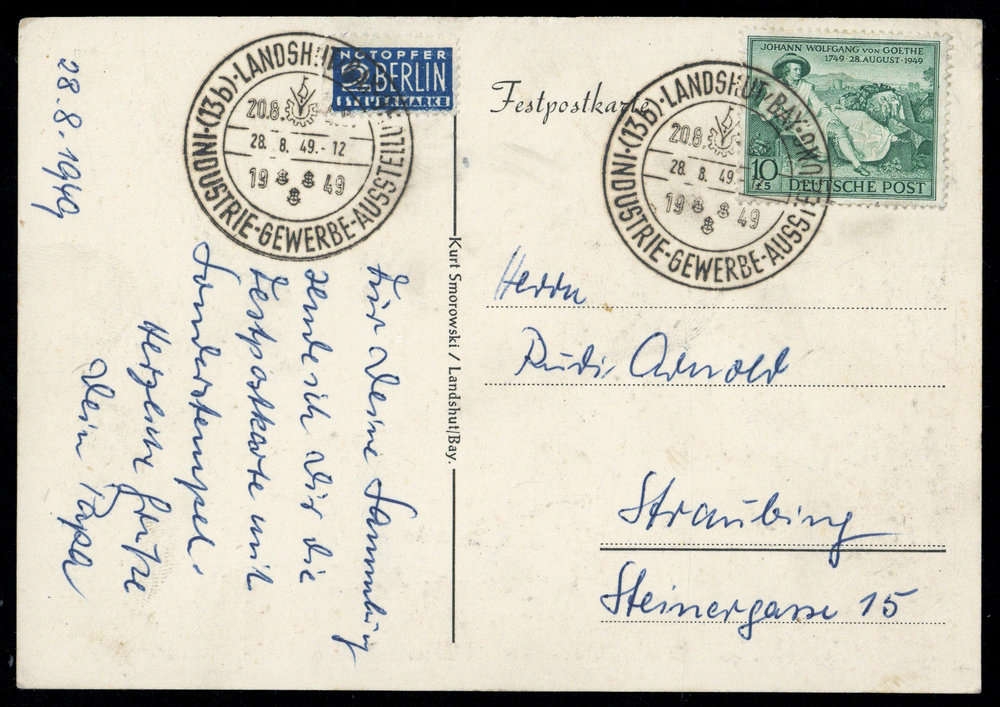 28.8.1949
NOTOPFER
2 BERLIN
STEUERMARKE
(13b) · LANDSHUT
INDUSTRIE-GEWERBE-AUSSTELLU
20.8.
28. 8. 49.-12
19 49
Für Deine Sammlung
sende ich Dir die
Festpostkarte mit
Sonderstempel.
Herzliche Grüße
Dein Papa
Kurt Smorowski / Landshut/Bay.
Festpostkarte
(13b) · LANDSHUT · BAY · UND
INDUSTRIE-GEWERBE-AUSSTELLU
20.8.
28. 8. 49.
19 49
JOHANN WOLFGANG VON GOETHE
1749 · 28. AUGUST · 1949
10
+5
DEUTSCHE POST
Herrn
Rudi Arnold
Straubing
Steinergasse 15